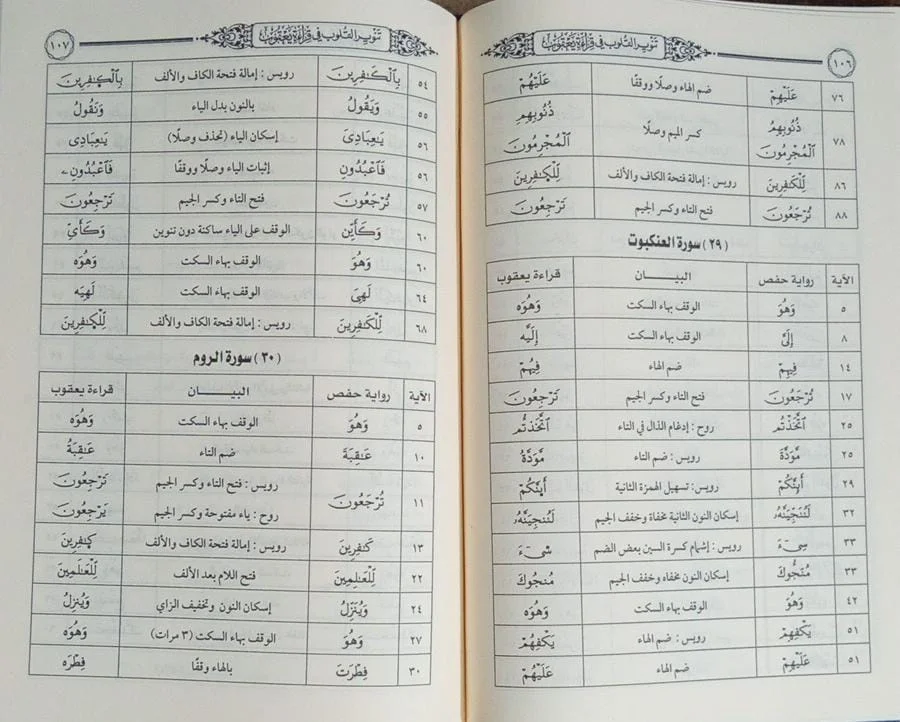 تنوير القلوب في قراءة يعقوب
١٠٦
٧٦ عَلَيْهِمْ ضم الهاء وصلًا ووقفًا عَلَيْهُمْ
٧٨ ذُنُوبِهِمُ ٱلْمُجْرِمُونَ كسر الميم وصلًا ذُنُوبِهِمِ ٱلْمُجْرِمُونَ
٨٦ لِّلْكَٰفِرِينَ رويس : إمالة فتحة الكاف والألف لِّلْكَٰفِرِينَ
٨٨ تُرْجَعُونَ فتح التاء وكسر الجيم تَرْجِعُونَ
(٢٩) سورة العنكبوت
الآية رواية حفص البيـــان قراءة يعقوب
٥ وَهُوَ الوقف بهاء السكت وَهُوَه
٨ إِلَىَّ الوقف بهاء السكت إِلَيَّه
١٤ فِيهِمْ ضم الهاء فِيهُمْ
١٧ تُرْجَعُونَ فتح التاء وكسر الجيم تَرْجِعُونَ
٢٥ ٱتَّخَذْتُم روح : إدغام الذال في التاء ٱتَّخَذتُّم
٢٥ مَّوَدَّةَ رويس : ضم التاء مَّوَدَّةُ
٢٩ أَئِنَّكُمْ رويس : تسهيل الهمزة الثانية
٣٢ لَنُنَجِّيَنَّهُۥ إسكان النون الثانية مخفاة وخفف الجيم لَنُنجِيَنَّهُۥ
٣٣ سِيٓءَ رويس : إشمام كسرة السين بعض الضم سِيٓءَ
٣٣ مُنَجُّوكَ إسكان النون مخفاه وخفف الجيم مُنجُوكَ
٤٢ وَهُوَ الوقف بهاء السكت وَهُوَه
٥١ يَكْفِهِمْ رويس : ضم الهاء يَكْفِهُمْ
٥١ عَلَيْهِمْ ضم الهاء عَلَيْهُمْ
تنوير القلوب في قراءة يعقوب
١٠٧
٥٤ بِٱلْكَٰفِرِينَ رويس : إمالة فتحة الكاف والألف بِٱلْكَٰفِرِينَ
٥٥ وَيَقُولُ بالنون بدل الياء وَنَقُولُ
٥٦ يَٰعِبَادِىَ إسكان الياء (تحذف وصلًا) يَٰعِبَادِى
٥٦ فَٱعْبُدُونِ إثبات الياء وصلًا ووقفًا فَٱعْبُدُونِۦ
٥٧ تُرْجَعُونَ فتح التاء وكسر الجيم تَرْجِعُونَ
٦٠ وَكَأَيِّن الوقف على الياء ساكنة دون تنوين وَكَأَيّ
٦٠ وَهُوَ الوقف بهاء السكت وَهُوَه
٦٤ لَهِىَ الوقف بهاء السكت لَهِيَه
٦٨ لِّلْكَٰفِرِينَ رويس : إمالة فتحة الكاف والألف لِّلْكَٰفِرِينَ
(٣٠) سورة الروم
الآية رواية حفص البيـــان قراءة يعقوب
٥ وَهُوَ الوقف بهاء السكت وَهُوَه
١٠ عَٰقِبَةَ ضم التاء عَٰقِبَةُ
١١ تُرْجَعُونَ رويس : فتح التاء وكسر الجيم تَرْجِعُونَ
روح : ياء مفتوحة وكسر الجيم يَرْجِعُونَ
١٣ كَٰفِرِينَ رويس : إمالة فتحة الكاف والألف كَٰفِرِينَ
٢٢ لِّلْعَٰلِمِينَ فتح اللام بعد الألف لِّلْعَٰلَمِينَ
٢٤ وَيُنَزِّلُ إسكان النون وتخفيف الزاي وَيُنزِلُ
٢٧ وَهُوَ الوقف بهاء السكت (٣ مرات) وَهُوَه
٣٠ فِطْرَتَ بالهاء وقفًا فِطْرَه